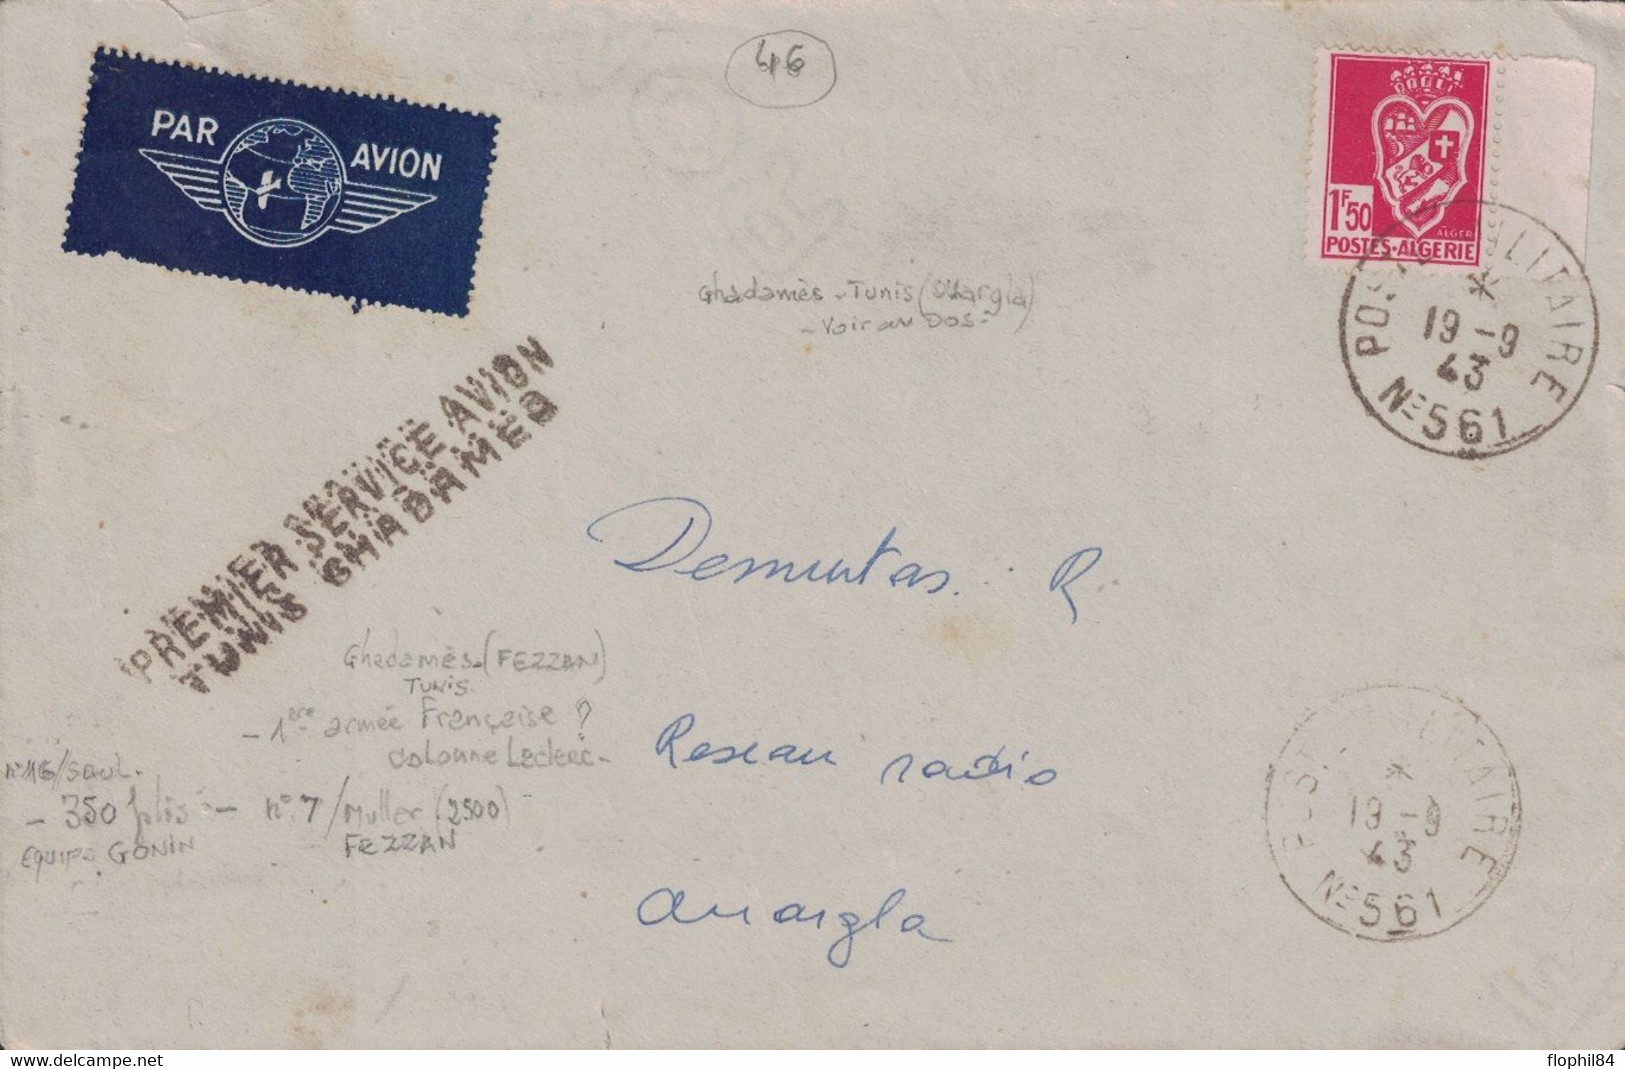 PAR AVION
46
1F50
ALGER
POSTES-ALGERIE
POSTE MILITAIRE
*
19-9
43
No 561
Ghadamès - Tunis (Ouargla)
- Voir au Dos -
PREMIER SERVICE AVION
TUNIS GHADAMES
Demuntas. R
Reseau radio
Ouargla
Ghadamès (FEZZAN)
TUNIS
- 1ère armée Française ?
colonne Leclerc -
n°16/SAUL.
- 350 plis - n°.7/Muller (2500)
FEZZAN
équipe GONIN
POSTE MILITAIRE
*
19-9
43
No 561
flophil84